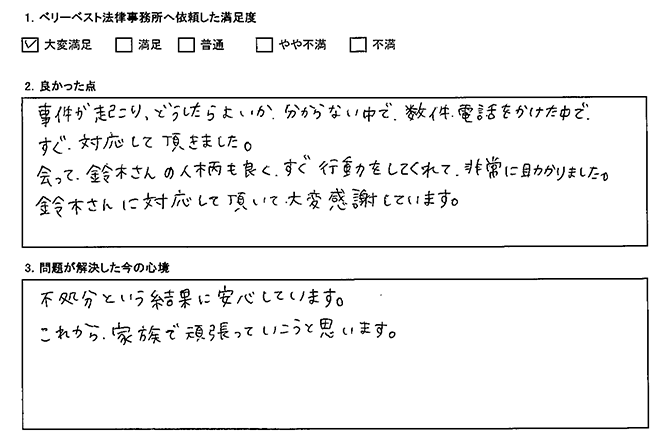 1. ベリーベスト法律事務所へ依頼した満足度
☑ 大変満足 □ 満足 □ 普通 □ やや不満 □ 不満
2. 良かった点
事件が起こり、どうしたらよいか、分からない中で、数件、電話をかけた中で、
すぐ、対応して頂きました。
会って、鈴木さんの人柄も良く、すぐ行動をしてくれて、非常に助かりました。
鈴木さんに対応して頂いて、大変感謝しています。
3. 問題が解決した今の心境
不処分という結果に安心しています。
これから、家族で頑張っていこうと思います。